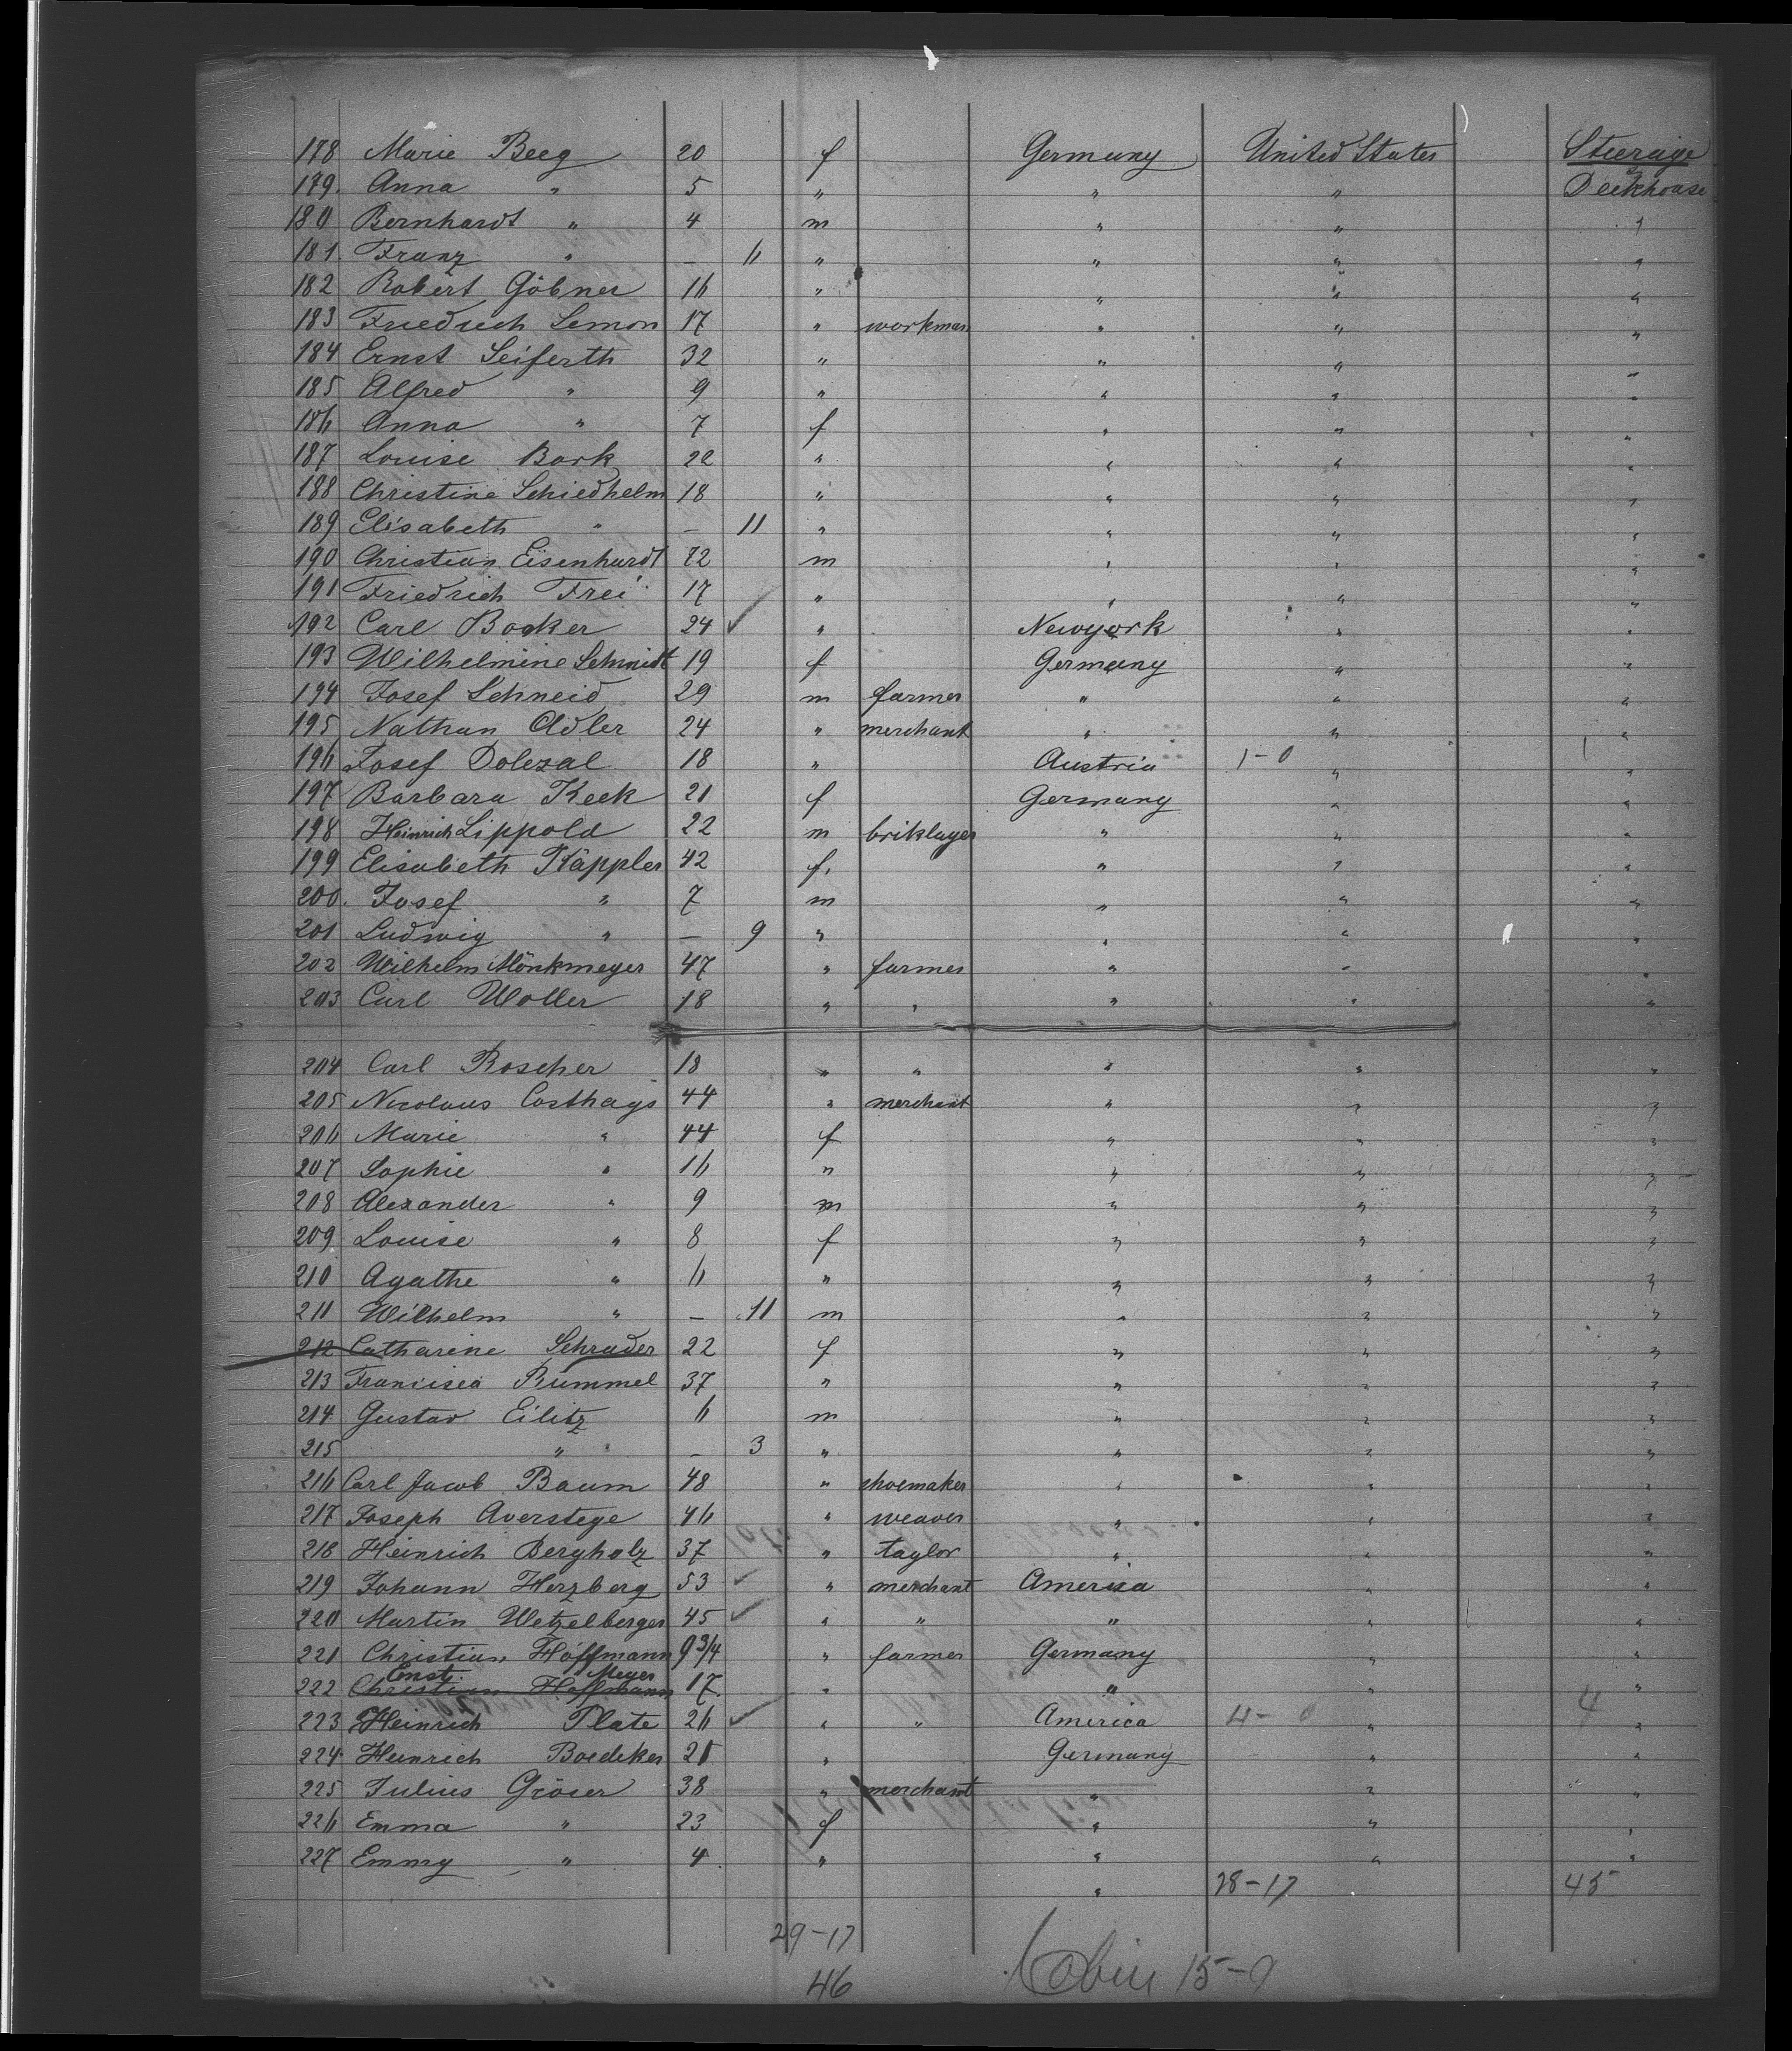 178 Marie Beeg 20 f Germany United States Steerage
179. Anna " 5 " " " Deckhouse
180 Bernhardt " 4 m " " "
181. Franz " — 6 " " " "
182 Robert Göbner 16 " " " "
183 Friedrich Lemon 17 " workman " " "
184 Ernst Seiferth 32 " " " "
185 Alfred " 9 " " " "
186 Anna " 7 f " " "
187 Louise Bork 22 " " " "
188 Christine Schiedhelm 18 " " " "
189 Elisabeth " — 11 " " " "
190 Christian Eisenhardt 72 m " " "
191 Friedrich Frei 17 " " " "
192 Carl Bocker 24 ✓ " Newyork " "
193 Wilhelmine Schmidt 19 f Germany " "
194 Josef Schneid 29 m farmer " " "
195 Nathan Adler 24 " merchant " " "
196 Josef Dolezal 18 " Austria 1-0 " 1 "
197 Barbara Keck 21 f Germany " "
198 Heinrich Lippold 22 m briklayer " " "
199 Elisabeth Käppler 42 f. " " "
200. Josef " 7 m " " "
201 Ludwig " — 9 " " " "
202 Wilhelm Mönkmeyer 47 " farmer " " "
203 Carl Woller 18 " " " " "
204 Carl Roscher 18 " " " " "
205 Nicolaus Costhays 44 " merchant " " "
206 Marie " 44 f " " "
207 Sophie " 16 " " " "
208 Alexander " 9 m " " "
209 Louise " 8 f " " "
210 Agathe " 6 " " " "
211 Wilhelm " — 11 m " " "
212 Catharine Schrader 22 f " " "
213 Francisca Rummel 37 " " " "
214 Gustav Eilitz 6 m " " "
215 " — 3 " " " "
216 Carl Jacob Baum 48 " shoemaker " " "
217 Joseph Averstege 46 " weaver " " "
218 Heinrich Bergholz 37 " taylor " " "
219 Johann Herzberg 53 ✓ " merchant America " "
220 Martin Wetzelberger 45 ✓ " " " " "
221 Christian Hoffmann 9 3/4 " farmer Germany " "
Ernst Meyer
222 Christian Hoffmann 17. " " " "
223 Heinrich Plate 26 ✓ " " America 4-0 " 4 "
224 Heinrich Boedeker 21 " Germany " "
225 Julius Gröser 38 " merchant " " "
226 Emma " 23 f " " "
227 Emmy " 4 " " " "
" 28-17 45
29-17
46 Cabin 15-0